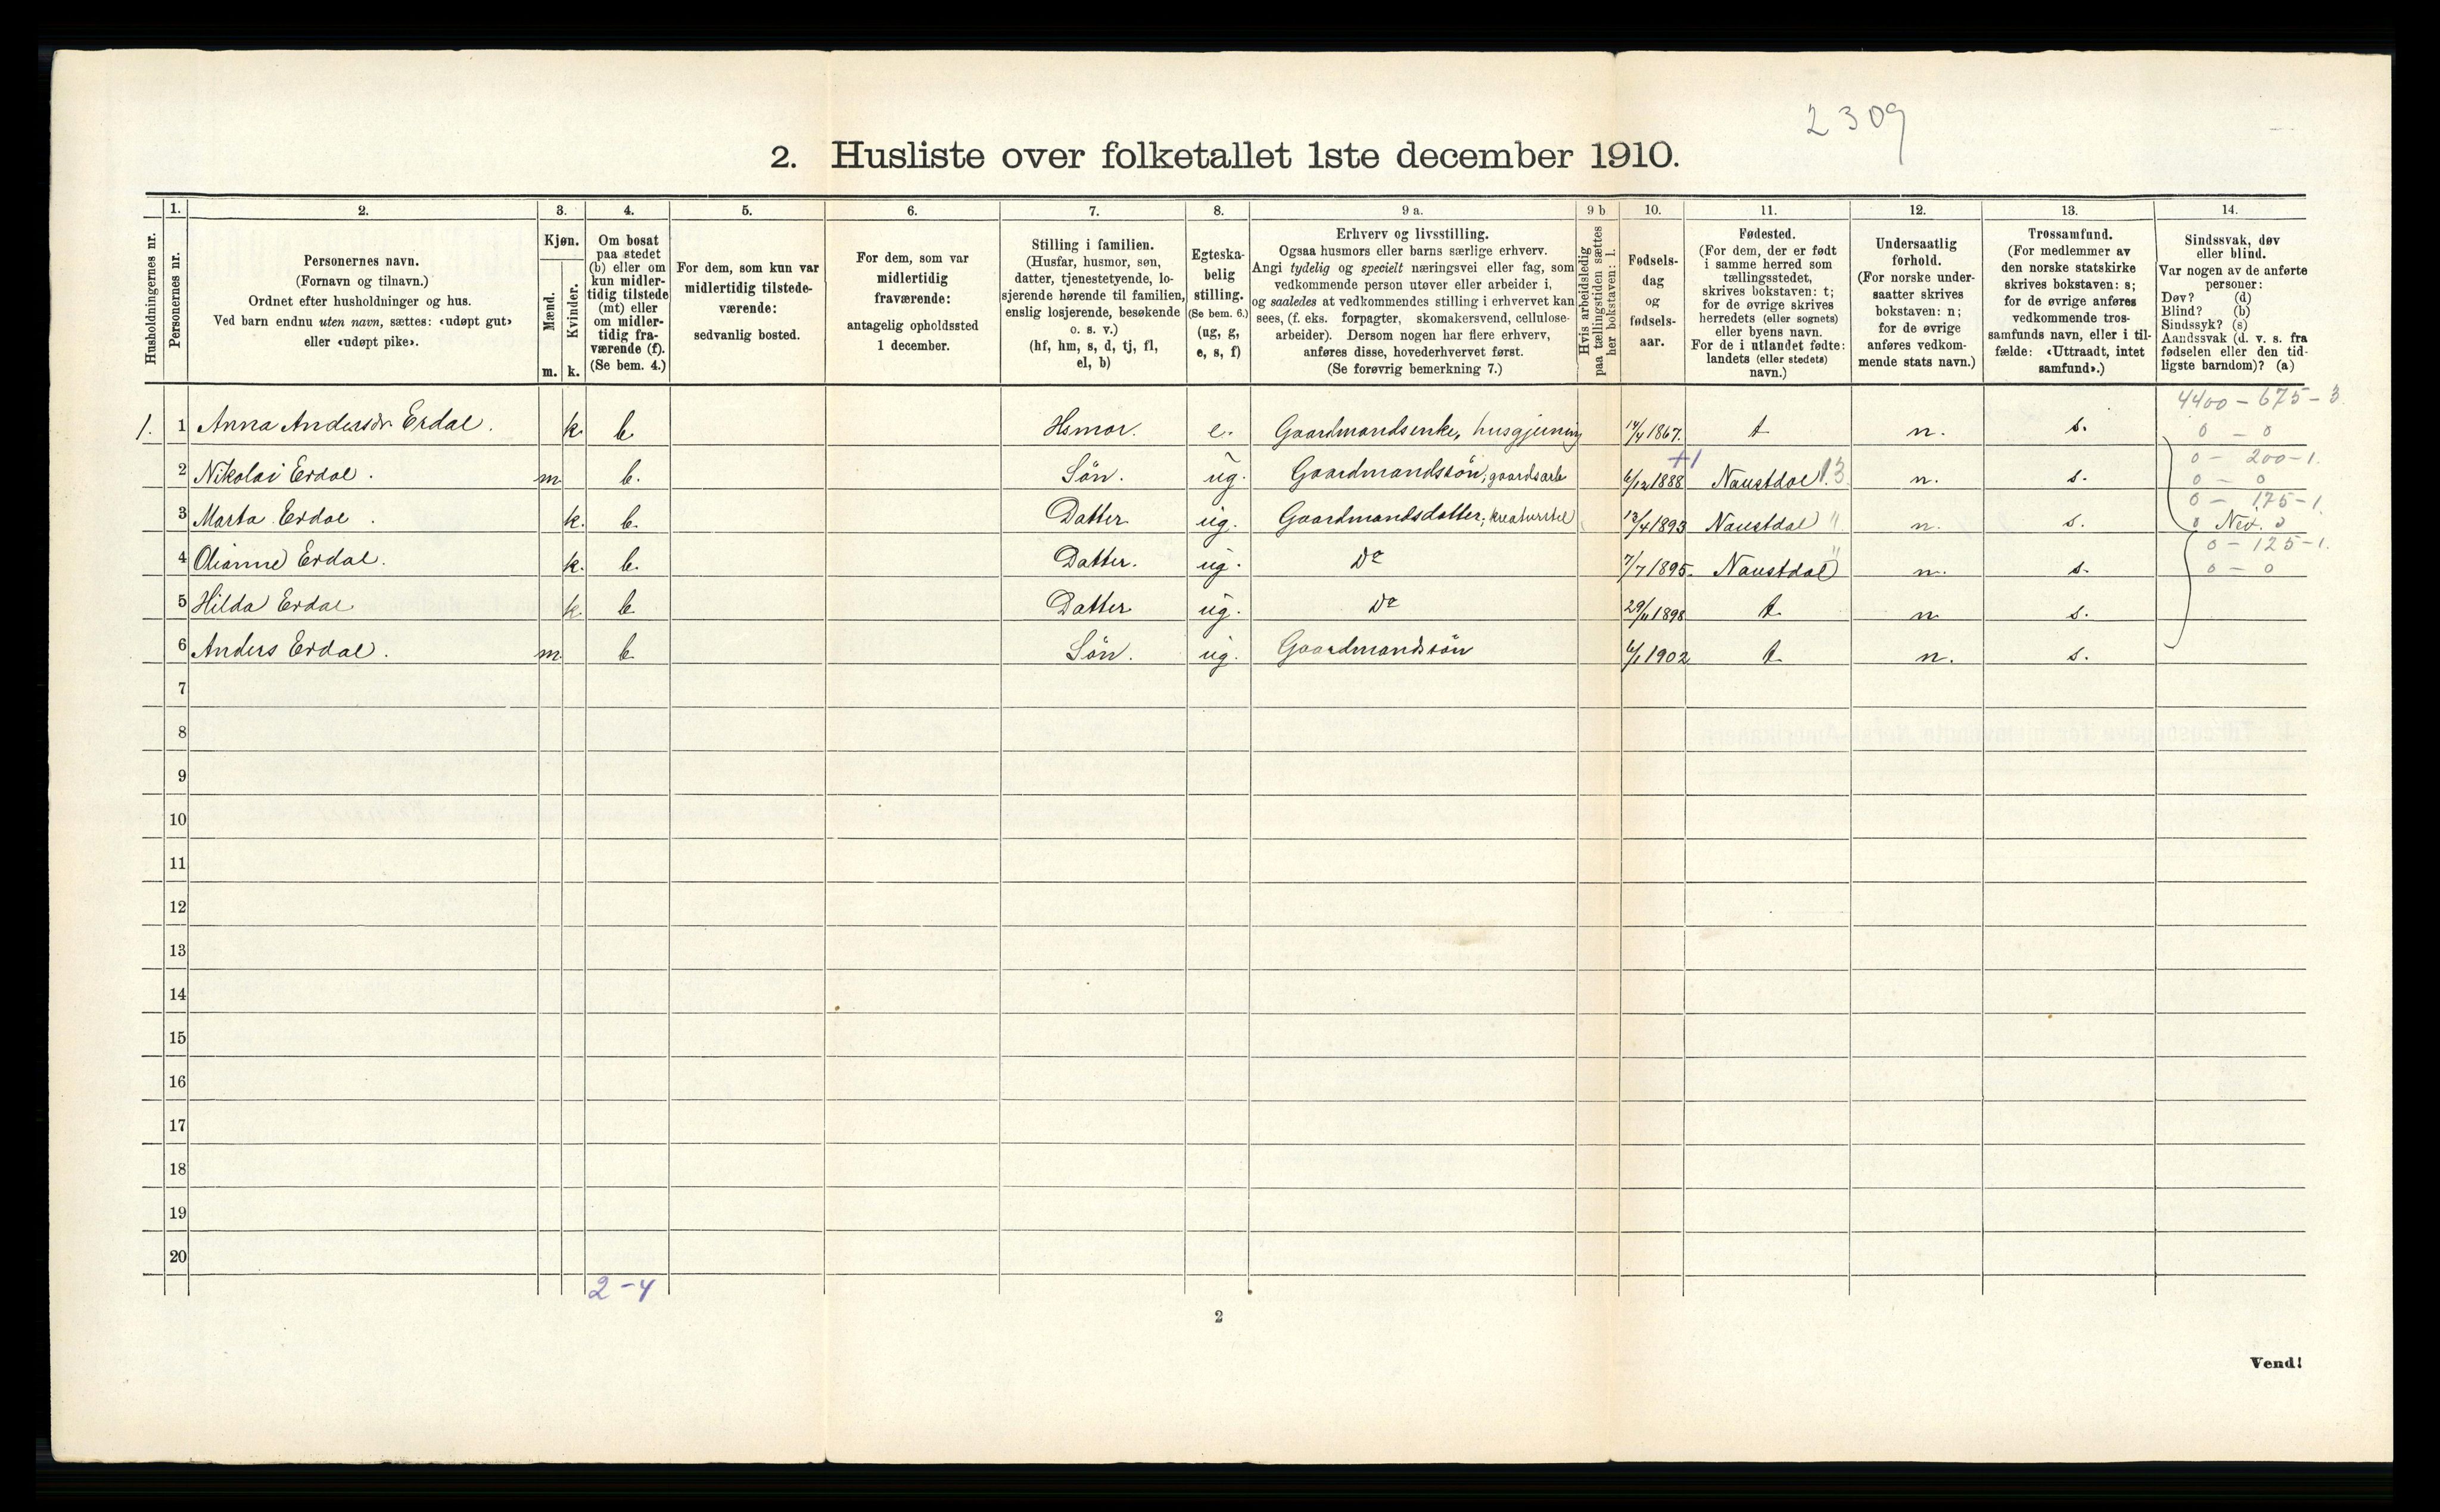 2309
2. Husliste over folketallet 1ste december 1910.
1. 2. 3. 4. 5. 6. 7. 8. 9 a. 9 b 10. 11. 12. 13. 14.
Husholdningernes nr.
Personernes nr.
Personernes navn.
(Fornavn og tilnavn.)
Ordnet efter husholdninger og hus.
Ved barn endnu uten navn, sættes: «udøpt gut»
eller «udøpt pike».
Kjøn.
Mænd.
Kvinder.
m. k.
Om bosat
paa stedet
(b) eller om
kun midler-
tidig tilstede
(mt) eller
om midler-
tidig fra-
værende (f).
(Se bem. 4.)
For dem, som kun var
midlertidig tilstede-
værende:
sedvanlig bosted.
For dem, som var
midlertidig
fraværende:
antagelig opholdssted
1 december.
Stilling i familien.
(Husfar, husmor, søn,
datter, tjenestetyende, lo-
sjerende hørende til familien,
enslig losjerende, besøkende
o. s. v.)
(hf, hm, s, d, tj, fl,
el, b)
Egteska-
belig
stilling.
(Se bem. 6.)
(ug, g,
e, s, f)
Erhverv og livsstilling.
Ogsaa husmors eller barns særlige erhverv.
Angi tydelig og specielt næringsvei eller fag, som
vedkommende person utøver eller arbeider i,
og saaledes at vedkommendes stilling i erhvervet kan
sees, (f. eks. forpagter, skomakersvend, cellulose-
arbeider). Dersom nogen har flere erhverv,
anføres disse, hovederhvervet først.
(Se forøvrig bemerkning 7.)
Hvis arbeidsledig
paa tællingstiden sættes
her bokstaven: l.
Fødsels-
dag
og
fødsels-
aar.
Fødested.
(For dem, der er født
i samme herred som
tællingsstedet,
skrives bokstaven: t;
for de øvrige skrives
herredets (eller sognets)
eller byens navn.
For de i utlandet fødte:
landets (eller stedets)
navn.)
Undersaatlig
forhold.
(For norske under-
saatter skrives
bokstaven: n;
for de øvrige
anføres vedkom-
mende stats navn.)
Trossamfund.
(For medlemmer av
den norske statskirke
skrives bokstaven: s;
for de øvrige anføres
vedkommende tros-
samfunds navn, eller i til-
fælde: «Uttraadt, intet
samfund».)
Sindssvak, døv
eller blind.
Var nogen av de anførte
personer:
Døv? (d)
Blind? (b)
Sindssyk? (s)
Aandssvak (d. v. s. fra
fødselen eller den tid-
ligste barndom)? (a)
4400 - 675 - 3
1. 1 Anna Andersdr Erdal. k. b. Hsmor. e. Gaardmandsenke, husgjerning 14/4 1867. t n. s. 0 - 0
+1 0 - 200 - 1.
2 Nikolai Erdal. m b. Sön. ug. Gaardmandssön, gaardsarb 6/12 1888 Naustdal 13. n. s. 0 - 0
0 - 175 - 1
3 Marta Erdal. k. b. Datter ug. Gaardmandsdatter, kreaturstel 13/4 1893 Naustdal " n. s. 0 Nei. 0
0 - 125 - 1.
4 Olianne Erdal. k. b. Datter. ug. Do 7/7 1895. Naustdal " n. s. 0 - 0
5 Hilda Erdal k b Datter ug. Do 29/11 1898 t. n s.
6 Anders Erdal. m b Sön. ug. Gaardmandssön 6/1 1902 t. n. s.
7
8
9
10
11
12
13
14
15
16
17
18
19
20
2-4
2
Vend!